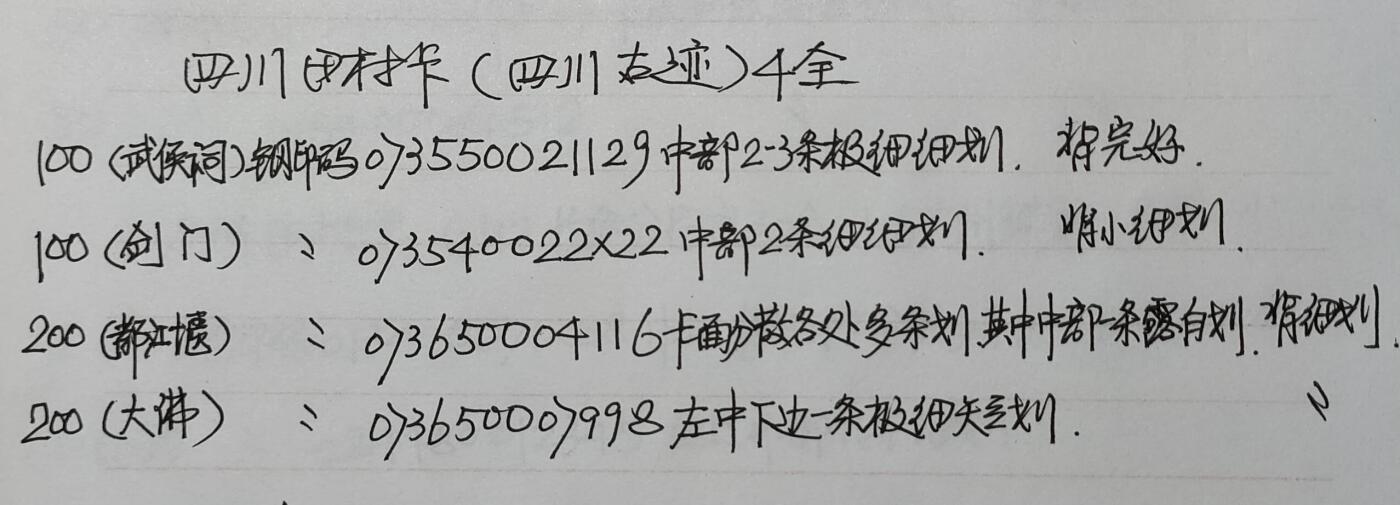 四川田村卡(四川古迹)4全
100(武侯祠)钢印码073550021129中部2-3条极细细划. 背完好.
100(剑门) 〃 073540022×22中部2条细细划. 背小细划.
200(都江堰) 〃 073650004116卡面分散各处多条划,其中中部一条露白划. 背细划.
200(大佛) 〃 073650007998左中下边一条极细短划. 〃